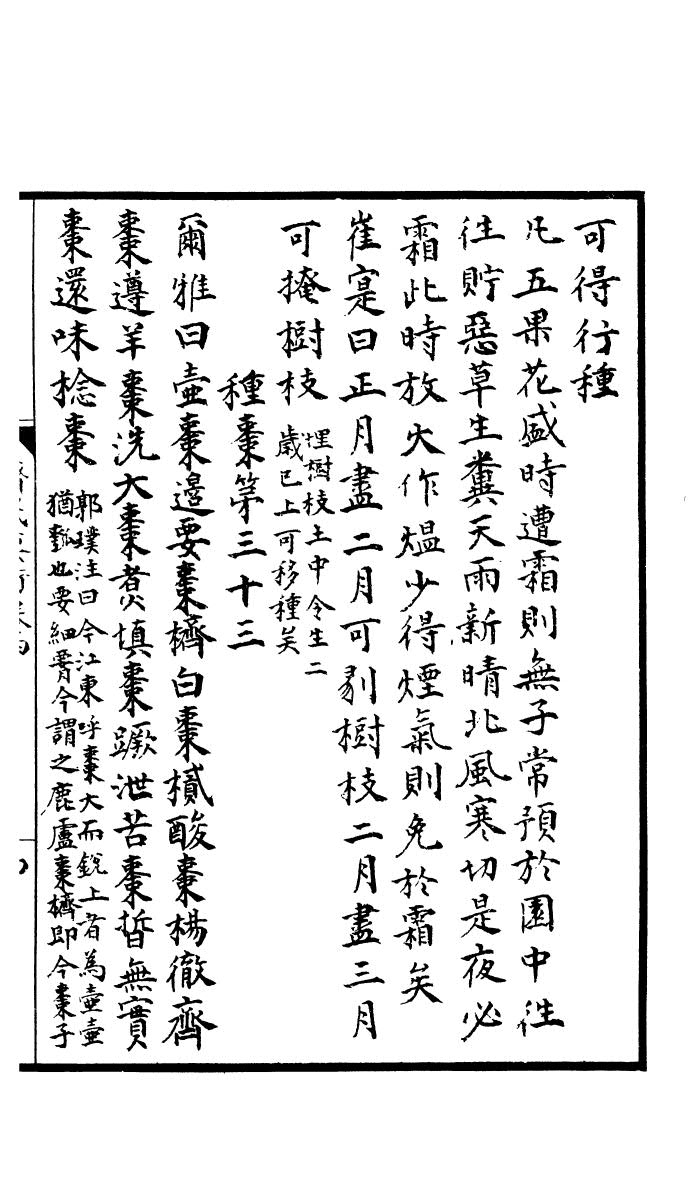 可得行種
凡五果花盛時遭霜則無子常預於園中徃
徃貯惡草生糞天雨新晴北風寒切是夜必
霜此時放火作熅少得煙氣則免於霜矣
崔寔曰正月盡二月可剥樹枝二月盡三月
可掩樹枝
埋樹枝土中令生二
歲已上可移種矣
種棗第三十三
爾雅曰壺棗邉要棗櫅白棗樲酸棗楊徹齊
棗遵羊棗洗大棗煑填棗蹶泄苦棗晳無實
棗還味棯棗
郭璞注曰今江東呼棗大而銳上者為壺壺
猶瓠也要細腰今謂之鹿盧棗櫅即今棗子